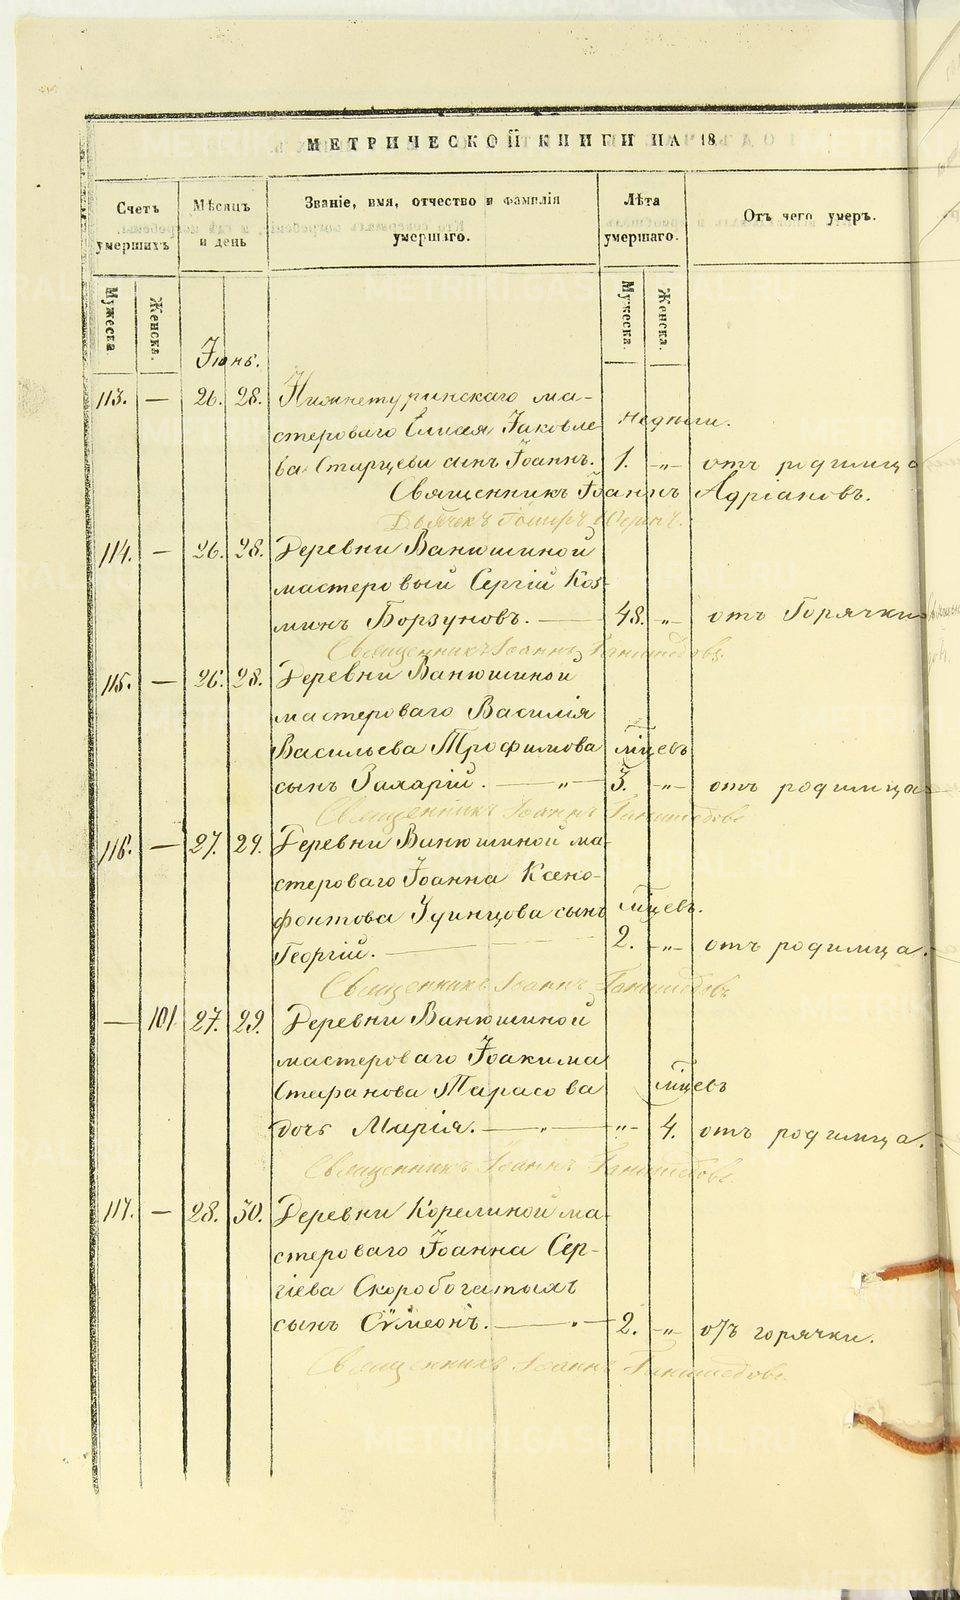 МЕТРИЧЕСКОЙ КНИГИ НА 18
Счетъ умершихъ
Мѣсяцъ и день
Званіе, имя, отчество и фамилія умершаго.
Лѣта умершаго.
Отъ чего умеръ.
Мужеска
Женска.
Мужеска.
Женска.
Іюнь.
113. — 26. 28. Нижнетуринскаго ма-
стероваго Елисея Іаковле недѣли.
ва Старцева сынъ Іоаннъ. 1. „ отъ родимца
Священникъ Іоаннъ Адріановъ.
114. — 26. 28. Деревни Ванюшиной
мастеровый Сергій Коз-
минъ Борзуновъ. — 48. „ отъ Горячки
Священникъ Іоаннъ
115. — 26. 28. Деревни Ванюшиной
мастероваго Василія
Васильева Трофимова мцевъ
сынъ Захарій. — „ — 3. „ отъ родимца
Священникъ Іоаннъ
116. — 27. 29. Деревни Ванюшиной ма-
стероваго Іоанна Ксено-
фонтова Удинцова сынъ мцевъ.
Георгій. — 2. „ отъ родимца.
Священникъ Іоаннъ
— 101 27. 29. Деревни Ванюшиной
мастероваго Іоакима
Стефанова Тарасова мцевъ
дочь Марія. — „ — „ 4. отъ родимца.
Священникъ Іоаннъ
117. — 28. 30. Деревни Корелиной ма-
стероваго Іоанна Сер-
гіева Скоробогатыхъ
сынъ Сѵмеонъ. — 2. „ отъ горячки.
Священникъ Іоаннъ
METRIKI.GASO-URAL.RU